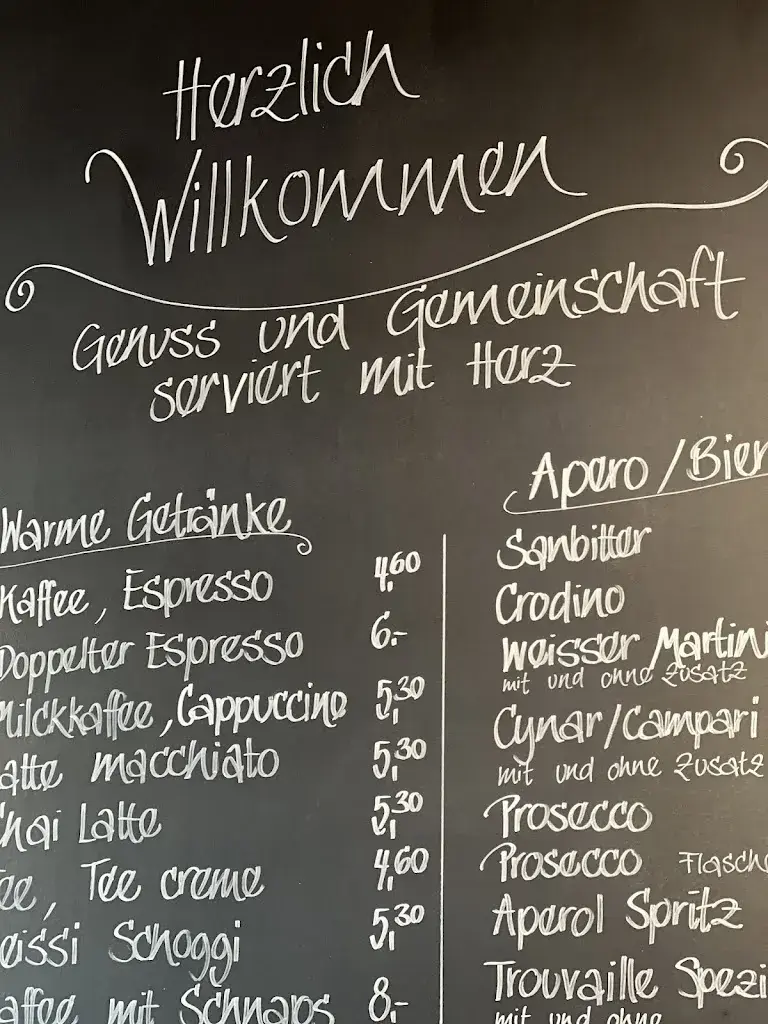 Herzlich
Willkommen
Genuss und Gemeinschaft
serviert mit Herz
Warme Getränke
Kaffee, Espresso 4,60
Doppelter Espresso 6.-
Milckkaffee, Cappuccino 5,30
atte macchiato 5,30
Chai Latte 5,30
ee, Tee creme 4,60
eissi Schoggi 5,30
affee mit Schnaps 8.-
Apero / Bier
Sanbitter
Crodino
Weisser Martini
mit und ohne Zusatz
Cynar/Campari
mit und ohne Zusatz
Prosecco
Prosecco Flasche
Aperol Spritz
Trouvaille Spezi
mit und ohne